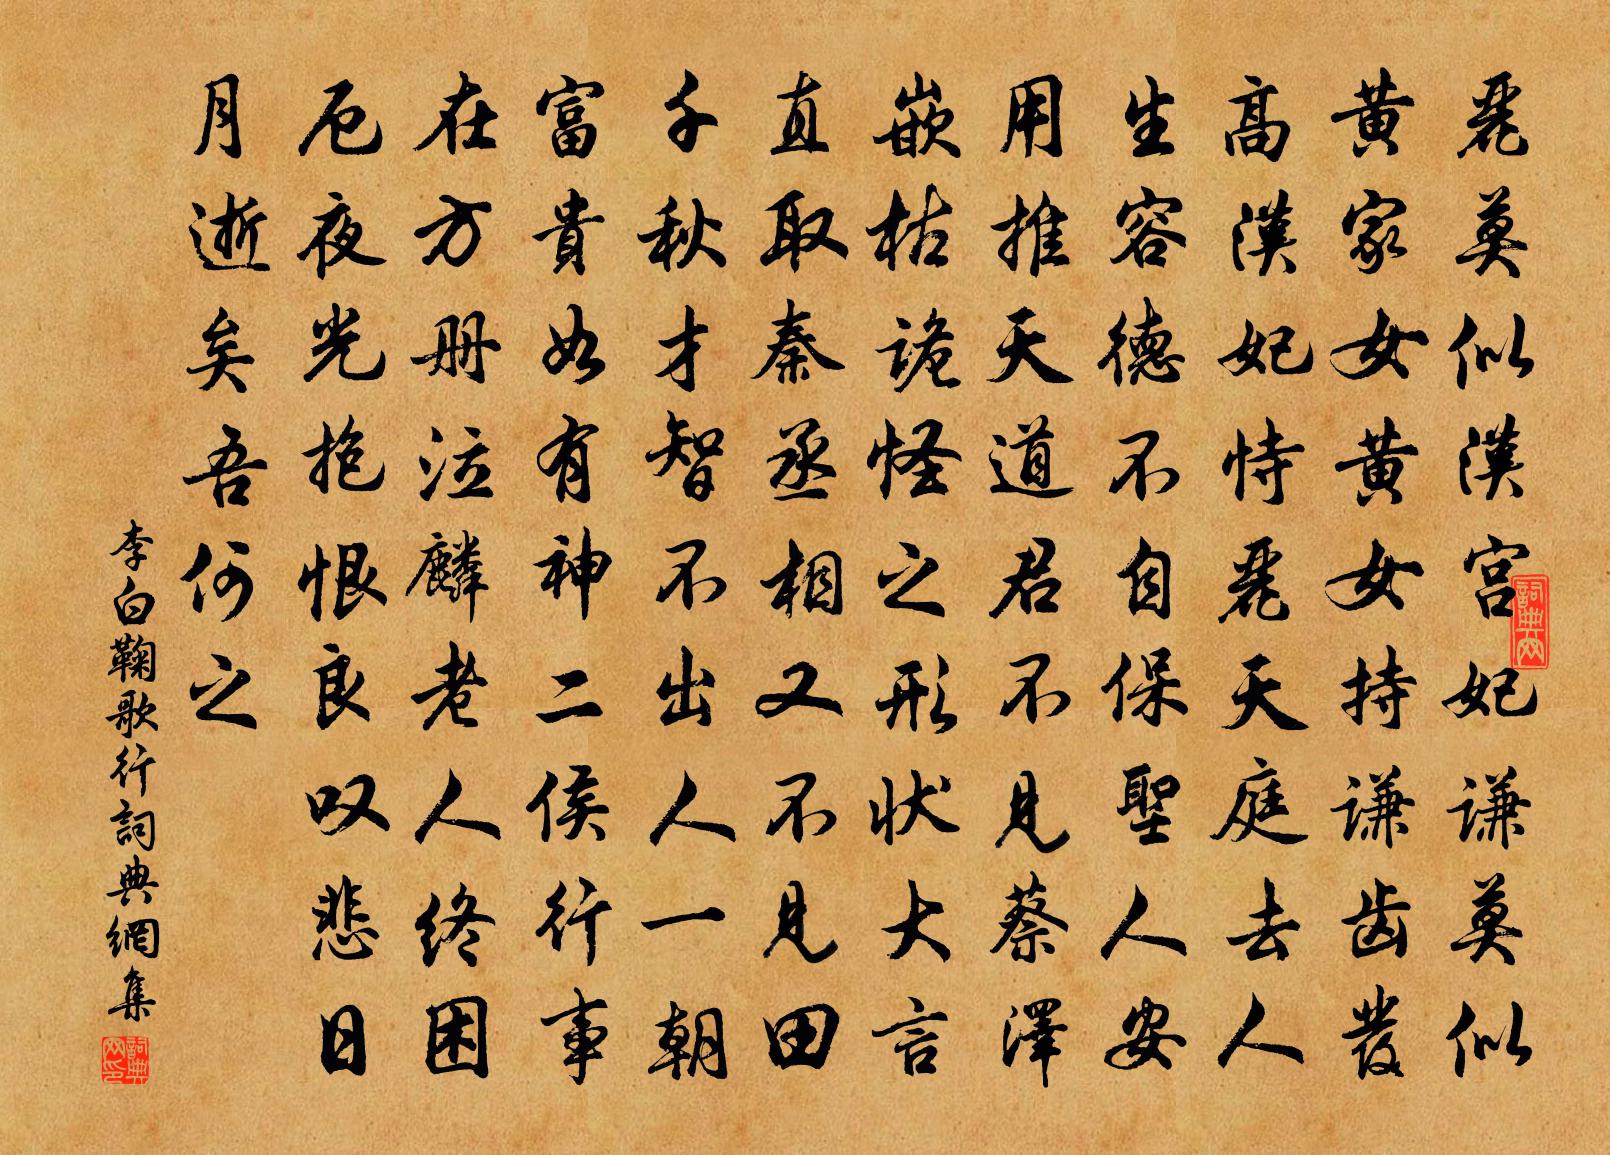 麗莫似漢宮妃謙莫似
黃家女黃女持謙齒發
高漢妃恃麗天庭去人
生容德不自保聖人安
用推天道君不見蔡澤
嵌枯詭怪之形狀大言
直取秦丞相又不見田
千秋才智不出人一朝
富貴如有神二侯行事
在方冊泣麟老人終困
厄夜光抱恨良叹悲日
月逝矣吾何之
李白鞠歌行詞典網集
詞典网
詞典网印